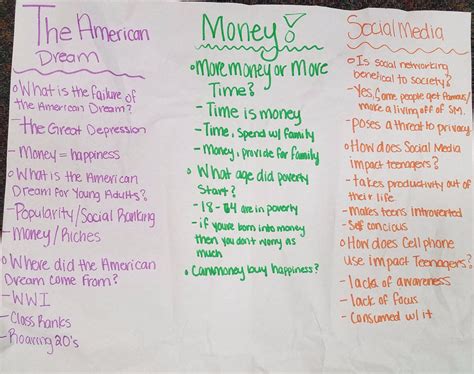 The American
Dream
○What is the failure of
the American Dream?
-The Great Depression
-Money = happiness
○What is the American
Dream for Young Adults?
-Popularity/Social Ranking
-Money/Riches
○Where did the American
Dream come from?
-WWI
-Class Ranks
-Roaring 20's
Money!
○More money or More
Time?
-Time is money
-Time, Spend w/ family
-Money, provide for family
○What age did poverty
Start?
-18-64 are in poverty
-if you're born into money
then you don't worry as
much
○Can money buy happiness?
Social Media
○Is social networking
benefical to society?
-Yes, Some people get famous/
make a living off of SM.
-poses a threat to privacy
○How does Social Media
impact teenagers?
-takes productivity out of
their life
-makes teens introverted
-Self concious
○How does Cell phone
use impact Teenagers?
-lack of awareness
-lack of focus
-Consumed w/ it